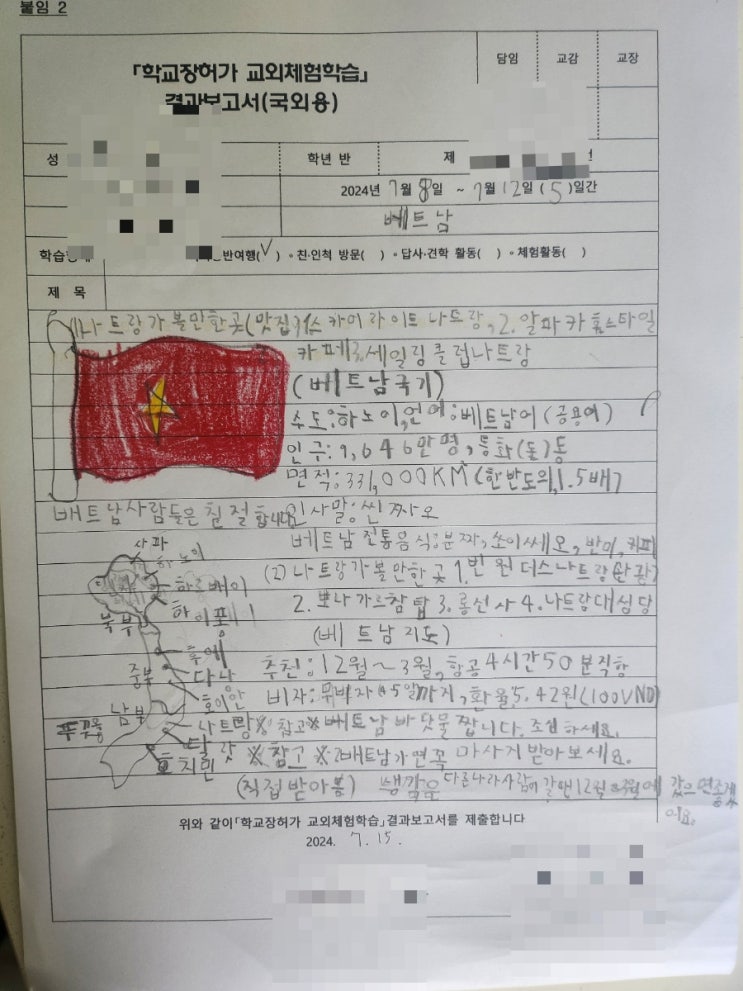 붙임 2
「학교장허가 교외체험학습」
결과보고서(국외용)
담임 교감 교장
성
학년 반
제
2024년 7월 8일 ~ 7월 12일 (5)일간
베트남
반여행(√) ∘친·인척 방문( ) ∘답사·견학 활동( ) ∘체험활동( )
제 목
나트랑가볼만한곳(맛집)1.스카이라이트 나트랑, 2.알파카홈스타일
카페3.세일링클럽나트랑
(베트남국기)
수도:하노이,언어:베트남어(공용어)
인구:9,646만명, 통화(돌)동
면적:331,000KM²(한반도의1.5배)
베트남사람들은 친절합니다 인사말:씬짜오
베트남전통음식:분짜, 쏘이쎄오, 반미, 커피
사파
하노이
하롱베이
하이퐁
북부
후에
중부
다낭
호이안
남부
나트랑
푸꾸옥
달랏
호치민
(2)나트랑가볼만한곳 1.빈원더스나트랑(관광)
2.뽀나가르참탑 3.롱선사 4.나트랑대성당
(베트남지도)
추천:12월~3월, 항공4시간50분직항
비자:무비자45일까지, 환율5.42원(100VND)
※참고※베트남바닷물짭니다.조심하세요.
※참고※2베트남가면꼭 마사지받아보세요.
(직접받아봄) 생각은 다른나라사람이 갈땐12월~3월에 갔으면좋겠
어요.
위와 같이「학교장허가 교외체험학습」결과보고서를 제출합니다
2024. 7. 15.